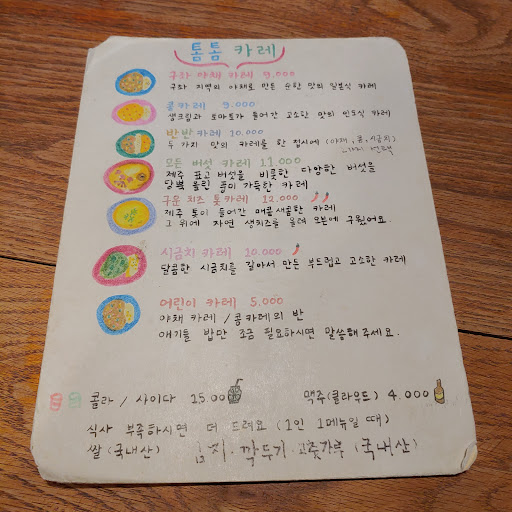 톰톰 카레
구좌 야채 카레 9,000
구좌 지역의 야채로 만든 순한 맛의 일본식 카레
콩카레 9,000
생크림과 토마토가 들어간 고소한 맛의 인도식 카레
반반카레 10,000
두가지 맛의 카레를 한 접시에 (야채, 콩, 시금치)
모든 버섯 카레 11,000
제주 표고버섯을 비롯한 다양한 버섯을
듬뿍 올린 풍미 가득한 카레
구운 치즈 톳카레 12,000
제주 톳이 들어간 매콤새콤한 카레
그 위에 자연 생치즈를 올려 오븐에 구웠어요
시금치 카레 10,000
달콤한 시금치를 갈아서 만든 부드럽고 고소한 카레
어린이 카레 5,000
야채 카레 / 콩카레의 반
애기들 밥만 조금 필요하시면 말씀해주세요.
콜라 / 사이다 1500
맥주(클라우드) 4,000
식사 부족하시면 더 드려요 (1인 1메뉴일 때)
쌀 (국내산) 김치·깍두기·고춧가루 (국내산)